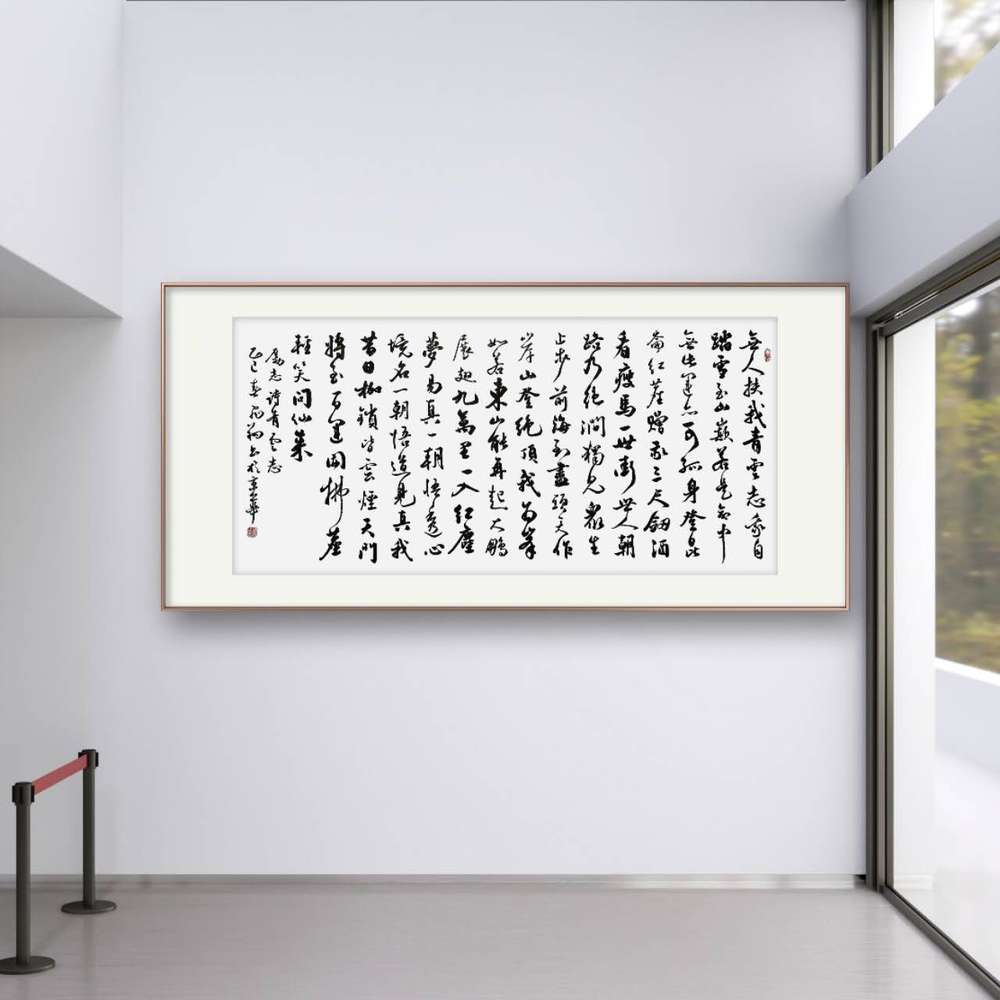 無人扶我青雲志我自
踏雪至山巔若是命中
無此運亦可孤身登昆
侖紅塵贈我三尺劍酒
看瘦馬一世衝世人朝
路乃絕澗獨見衆生
止步前海到盡頭天作
岸山登絕頂我為峯
如若東山能再起大鵬
展翅九萬里一入紅塵
夢易真一朝悟透心
境名一朝悟道見真我
昔日枷鎖皆雲煙天門
將至百運開拂塵
輕笑問仙來
勵志詩青雲志
乙巳春書於京華